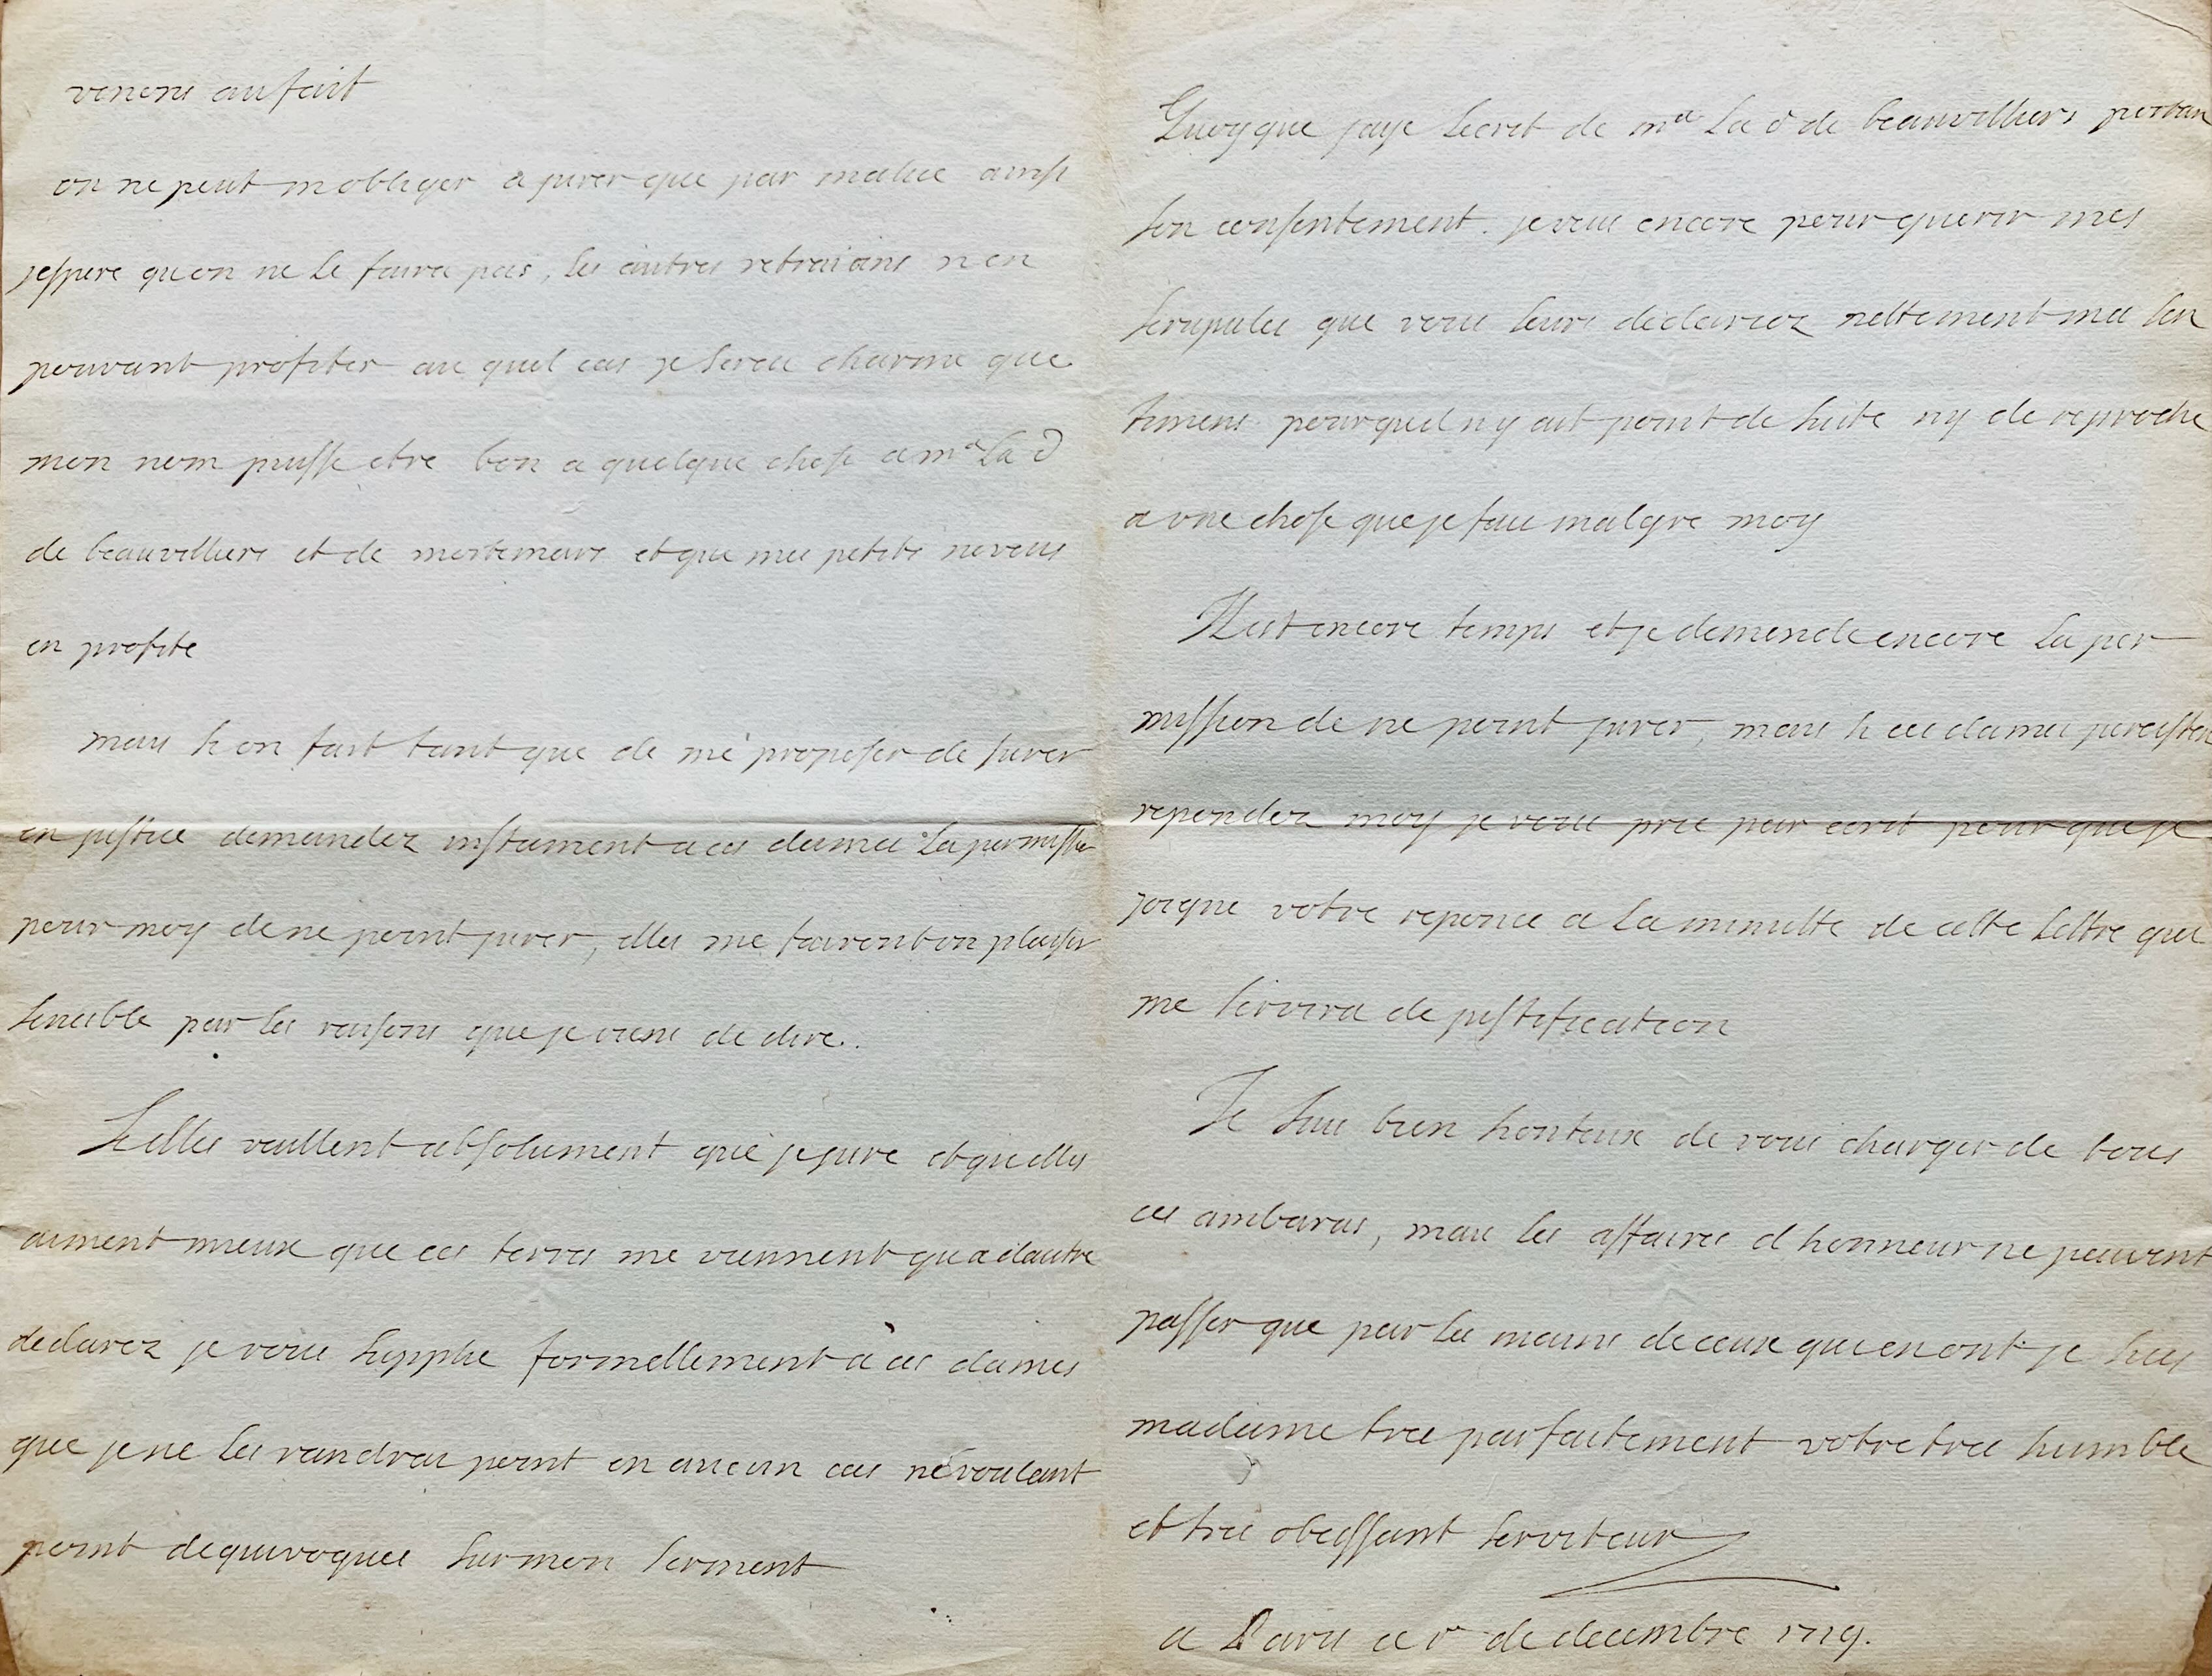 venons au fait
on ne peut mobliger a jurer que par malice ainsi
jespere quon ne le faira pas, les autres retraians nen
pouvant profiter au quel cas je serai charmé que
mon nom puisse etre bon a quelque chose a mᵉ La d
de beauvilliers et de mortemars et que mes petits neveus
en profite
mais si on fait tant que de me proposer de jurer
en justice demandez instament a ces dames la permissio
pour moy de ne point jurer, elles me fairont un plaisir
sencible par les raisons que je viens de dire.
Si elles veullent absolument que je jure et quelles
aiment mieux que ces terres me viennent qua dautre
declarez je vous supplie formellement a ces dames
que je ne les randrai point en aucun cas ne voulant
point dequivoques sur mon serment
Quoyque jaye lecrit de mᵉ La d de beauvilliers portan
son consentement. je veus encore pour guerir mes
scrupules que vous leurs declariez nettement mes sen
timens pour quil ny ait point de suite ny de reproche
a une chose que je fais malgre moy
Il est encore temps et je demende encore la per
mission de ne point jurer, mais si ces dames persisten
repondez moy je vous prie par ecrit pour que je
joigne votre reponce a la minutte de cette lettre qui
me servira de justification
Je suis bien honteux de vous charger de tous
ces ambaras, mais les affaires d honneur ne peuvent
passer que par les mains de ceux qui en ont je suis
madame tres parfaitement votre tres humble
et tres obeissant serviteur
a Paris ce 1ʳ de decembre 1719.